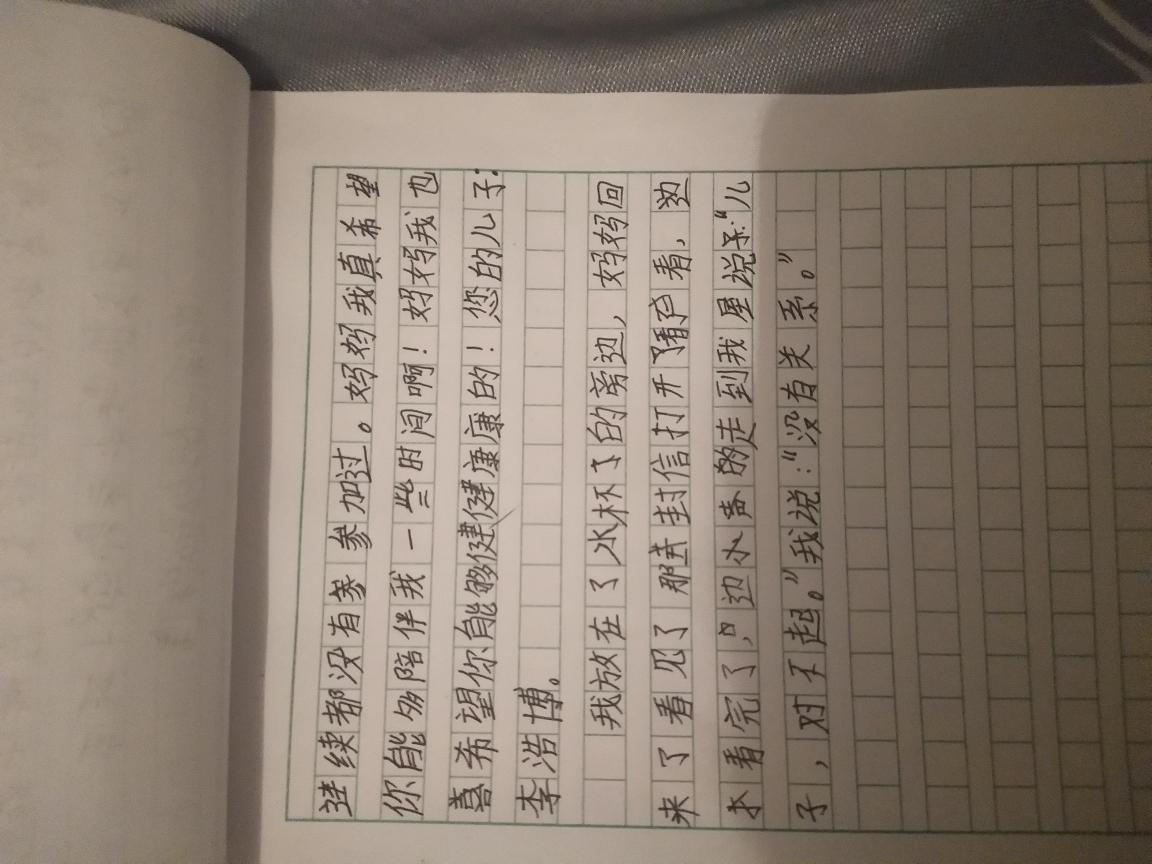 连续都没有参加过。妈妈我真希望
你能够陪伴我一些时间啊！妈妈我也
喜希望你能够健健康康的！您的儿子：
李浩博。
我放在了水杯了的旁边，妈妈回
来了看见了那封信打开了看，边
看完了，边小声的走到我屋说：“儿
子，对不起。”我说：“没有关系。”